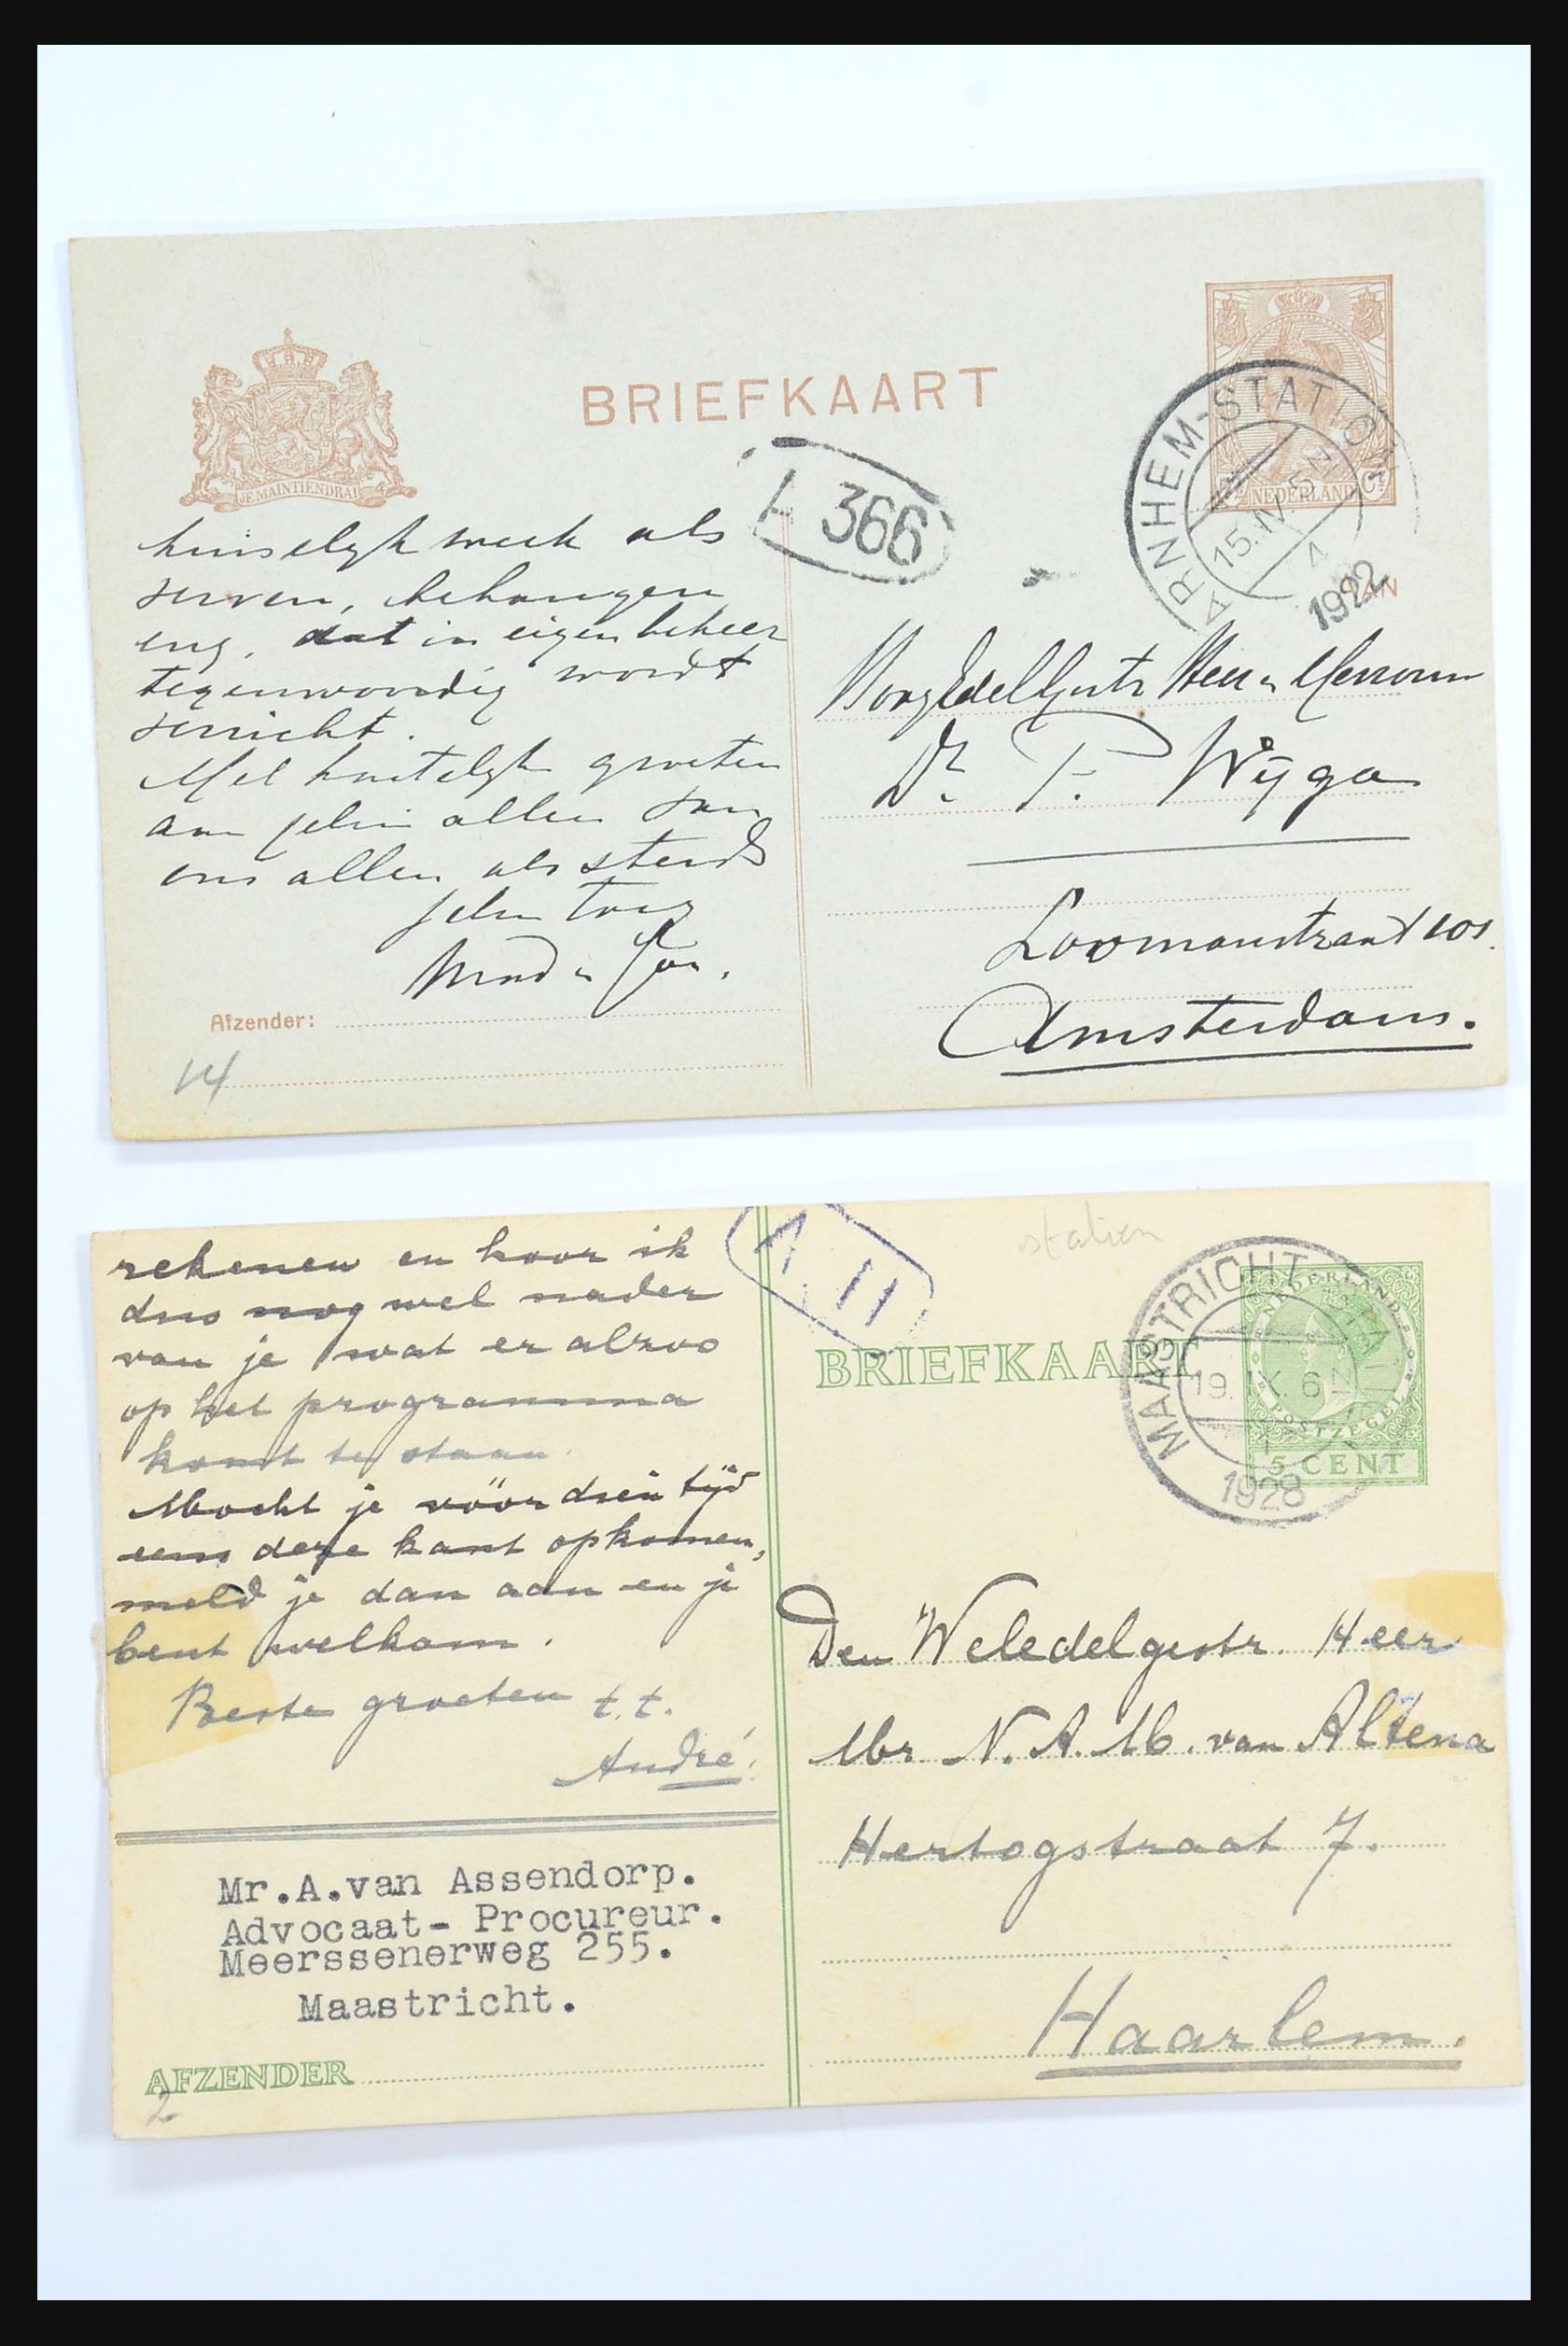 BRIEFKAART
JE MAINTIENDRAI
NEDERLAND
ARNHEM-STATION
15.IV 5N
4
1922
366
AAN
huiselyk werk als
verven, behangen
enz. dat in eigen beheer
tegenwoordig wordt
verricht.
Met hartelyk groeten
aan jelui allen van
ons allen als steeds
jelui toeg
Afzender:
14
HoogEdelGestr Heer en Mevrouw
Dr. P. Wijga
Loomanstraat 101.
Amsterdam.
rekenen en hoor ik
dus nog wel nader
van je wat er alzoo
op het programma
komt te staan.
Mocht je vóór dien tijd
eens deze kant opkomen,
meld je dan aan en je
bent welkom.
Beste groeten t.t.
André.
Mr.A.van Assendorp.
Advocaat- Procureur.
Meerssenerweg 255.
Maastricht.
AFZENDER
2
A II
station
BRIEFKAART
MAASTRICHT
19.IX.6N
1928
NEDERLAND
POSTZEGEL
5 CENT
Den Weledelgestr. Heer
Mr N. A. M. van Altena
Hertogstraat 7.
Haarlem.